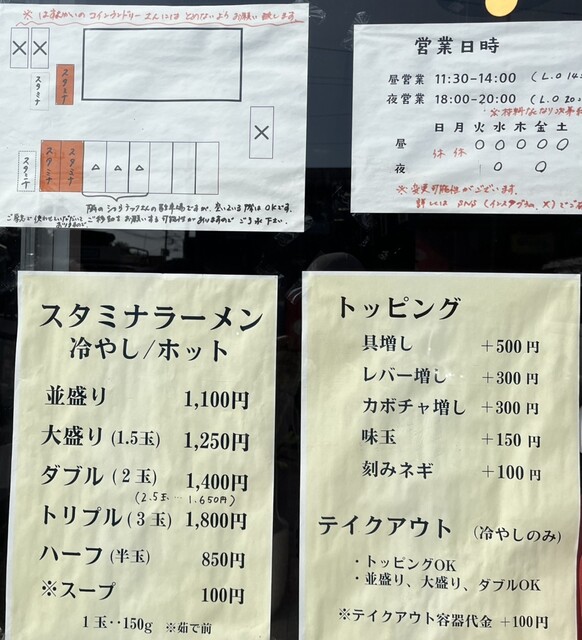 ※ はすむかいのコインランドリーさんにはとめないようお願い致します。
スタミナ
スタミナ
スタミナ
スタミナ
スタミナ
営業日時
昼営業 11:30-14:00 (L.O 14
夜営業 18:00-20:00 (L.O 20
日 月 火 水 木 金 土
昼 休 休 ○ ○ ○ ○ ○
夜 ○ ○
※ 変更可能性がございます。
詳しくは SNS (インスタグラム、X) でご
スタミナラーメン
冷やし/ホット
並盛り 1,100円
大盛り (1.5玉) 1,250円
ダブル (2玉) 1,400円
(2.5玉…1,650円)
トリプル (3玉) 1,800円
ハーフ (半玉) 850円
※スープ 100円
1玉‥150g ※茹で前
トッピング
具増し +500円
レバー増し +300円
カボチャ増し +300円
味玉 +150円
刻みネギ +100円
テイクアウト (冷やしのみ)
・トッピングOK
・並盛り、大盛り、ダブルOK
※テイクアウト容器代金 +100円